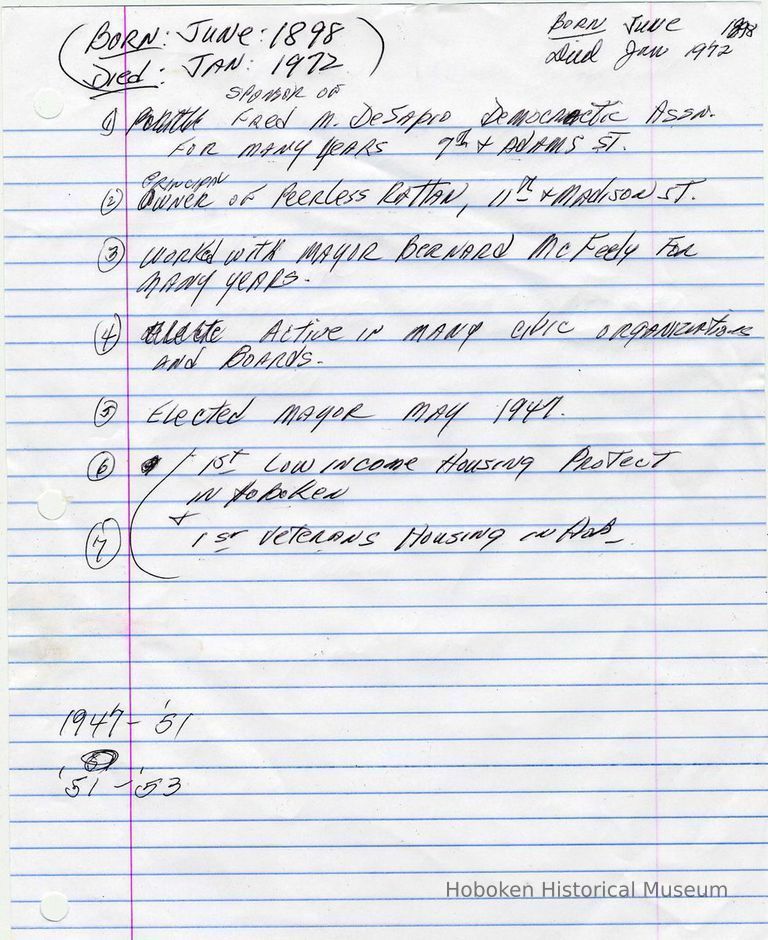 (BORN: JUNE: 1898
Died: JAN: 1972)
BORN JUNE 1898
Died Jan 1972
SPONSOR OF
1) Fred M. DeSapio Democractic Assn.
FOR MANY YEARS 9th & ADAMS ST.
PRINCIPAL
2) OWNER OF Peerless RATTAN, 11th & MADISON ST.
3) WORKED WITH MAYOR BERNARD McFeely FOR
MANY YEARS.
4) Active IN MANY CIVIC ORGANIZATIONS
AND BOARDS.
5) Elected MAYOR MAY 1947.
6) 1st LOW INCOME HOUSING PROJECT
IN HOBOKEN
&
7) 1ST VETERANS HOUSING IN HOB.
1947 - '51
'51 - '53
Hoboken Historical Museum